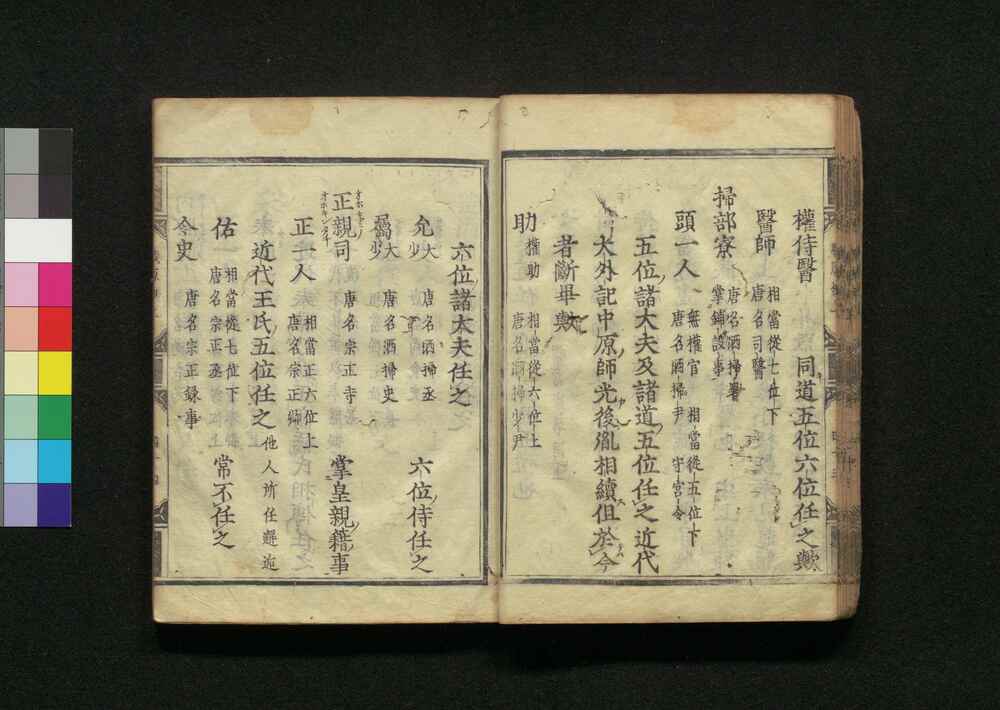 權侍醫 同道五位六位任之歟
醫師 相當從七位下
唐名司醫
掃部寮 唐名洒掃署
掌鋪設事
頭一人 無權官 相當從五位下
唐名洒掃尹 守宮令
五位諸大夫及諸道五位任之近代
大外記中原師光後胤相續但於今
者斷畢歟
助 權助 相當從六位上
唐名洒掃少尹
六位諸大夫任之
允 大少 唐名洒掃丞 六位侍任之
屬 大少 唐名洒掃史
正親司 唐名宗正寺 掌皇親籍事
正一人 相當正六位上
唐名宗正卿
近代王氏五位任之 他人所任邂逅
佑 相當從七位下
唐名宗正丞 常不任之
令史 唐名宗正録事